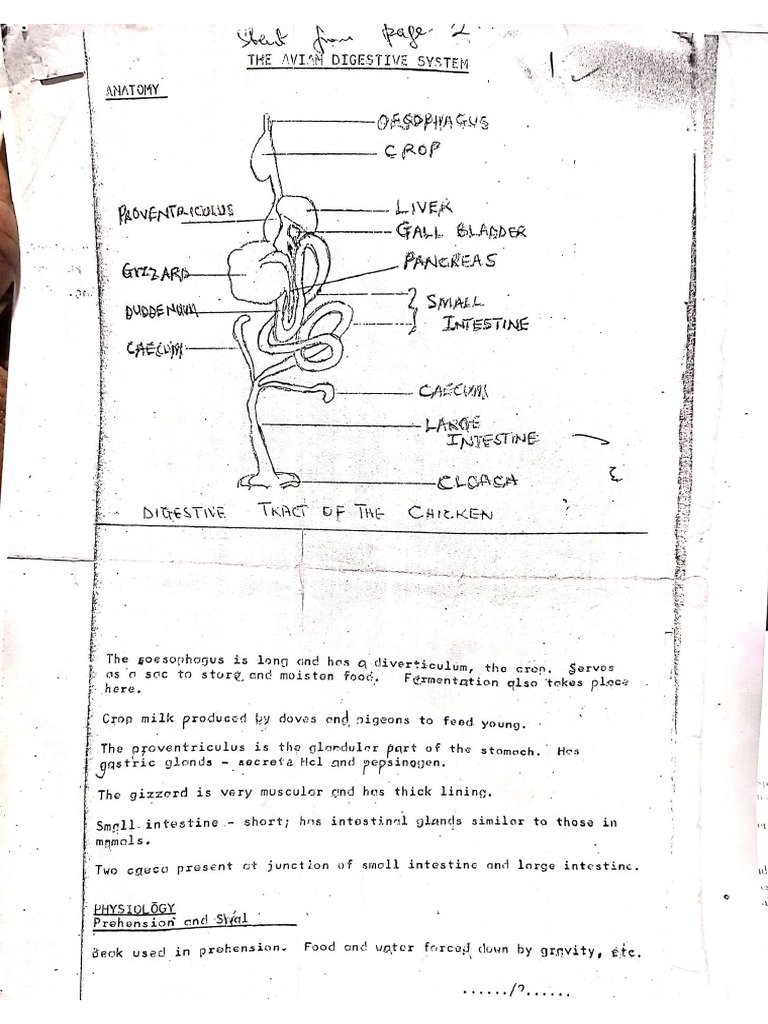 Start from page 2
THE AVIAN DIGESTIVE SYSTEM
1
ANATOMY
OESOPHAGUS
CROP
PROVENTRICULUS
LIVER
GALL BLADDER
GIZZARD
PANCREAS
DUDDENUM
SMALL
INTESTINE
CAECUM
CAECUM
LARGE
INTESTINE
CLOACA
DIGESTIVE TRACT OF THE CHICKEN
The eoesophagus is long and has a diverticulum, the crop. Serves
as a sac to store and moisten food. Fermentation also takes place
here.
Crop milk produced by doves and pigeons to feed young.
The proventriculus is the glandular part of the stomach. Has
gastric glands - secrete Hcl and pepsinogen.
The gizzard is very muscular and has thick lining.
Small intestine - short; has intestinal glands similar to those in
mamals.
Two caeca present at junction of small intestine and large intestine.
PHYSIOLOGY
Prehension and Swal
Beak used in prehension. Food and water forced down by gravity, etc.
....../2......